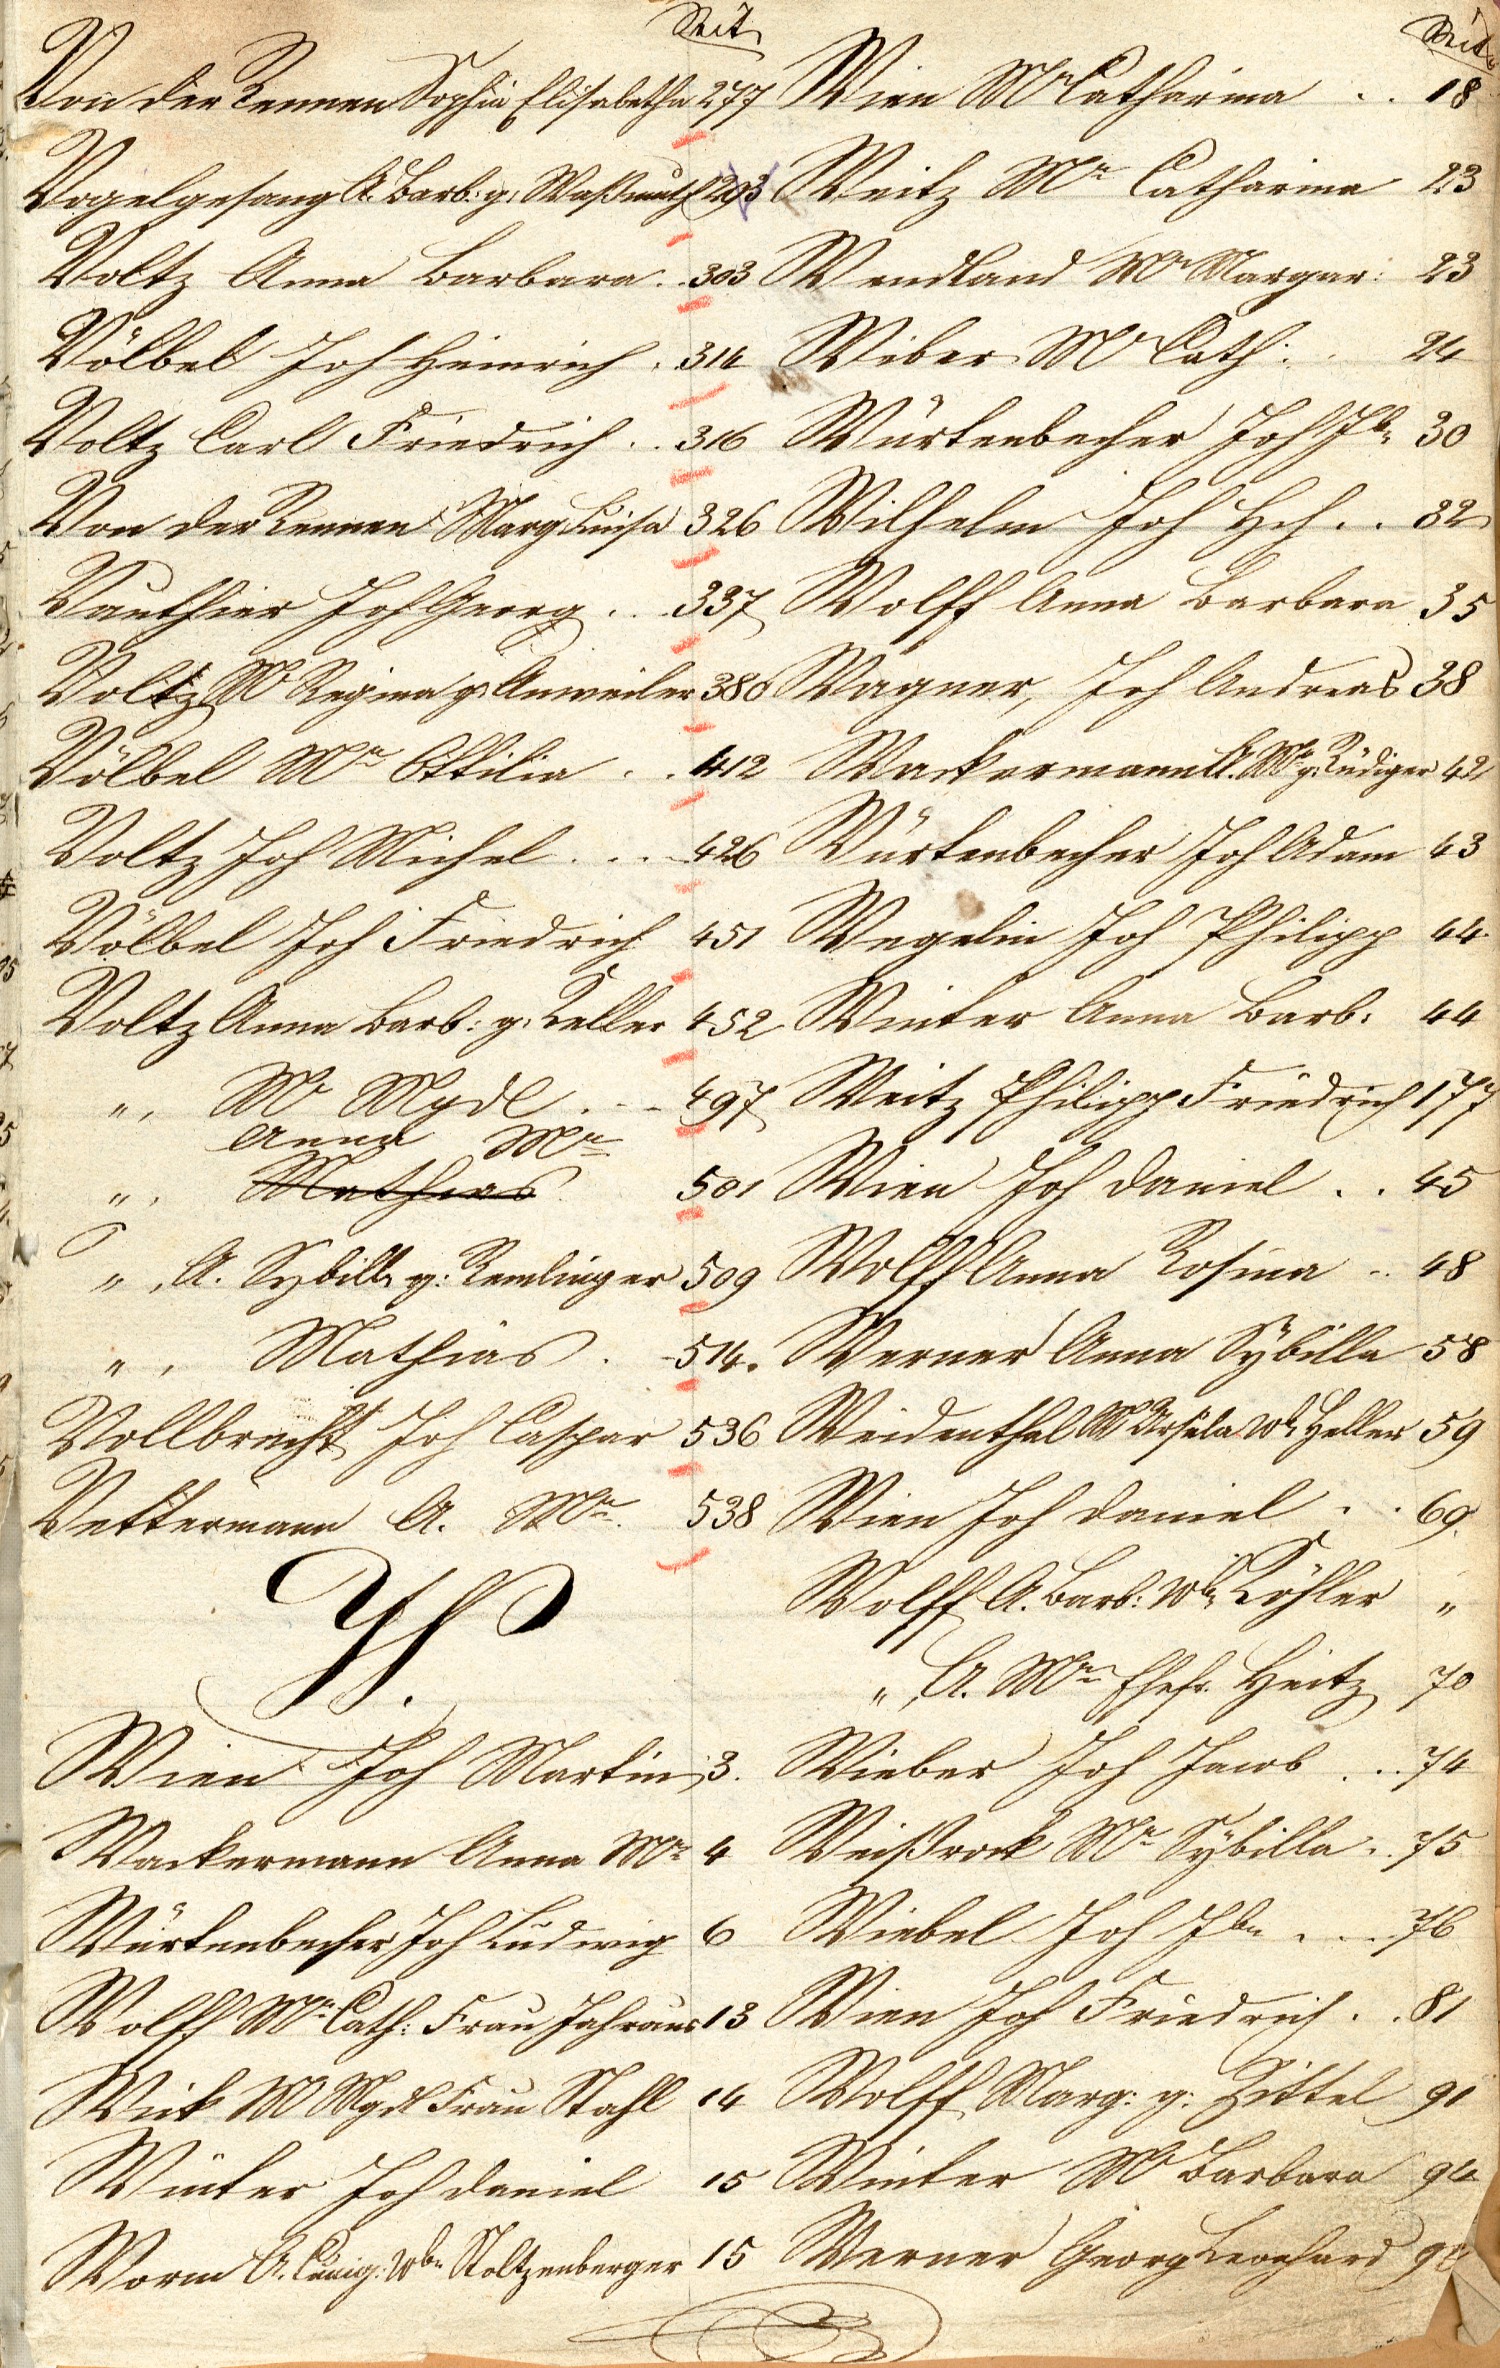 Seit.
Von der Tennen Sophia Elisabetha 277
Vogelgesang A. Barb: g. Waßmuth 293
Voltz Anna Barbara . . 303
Völbel Joh Heinrich . 314
Voltz Carl Friedrich . . 316
Von der Tennen Marg Luisa 326
Vauthier Joh Georg . . 337
Voltz Mr Regina g. Anweiler 380
Völbel Mra Ottilia . . 412
Voltz Joh Michel . . . 426
Völbel Joh Friedrich 451
Voltz Anna Barb: g. Keller 452
" , Mr Mgdl . - - 497
Anna Mra
" , Mathias 501
" , A. Sybilla g: Remlinger 509
" , Mathias . - 514.
Vollbrecht Joh Caspar 536
Vettermann A. Mra. 538
W.
Wien Joh Martin 3.
Wackermann Anna Mra 4
Würtenbecher Joh Ludwig 6
Wolff Mra Cath: Frau Jahraus 13
Wick M Mgdl Frau Stahl 14
Winter Joh Daniel 15
Worm A. Cunig: Wbe Stoltzenberger 15
Seit.
Wien Mr Catharina . . 18
Weitz Mra Catharina 23
Wendland Mr Margar: 23
Wiber Mr Cath: . 24
Würtenbecher Joh Jb. 30
Wilhelm Joh Hch . . 32
Wolff Anna Barbara 35
Wagner, Joh Andreas 38
Wackermann A. Mr g. Rüdiger 42
Würtenbecher Joh Adam 43
Wegelin Joh Philipp 44
Winter Anna Barb: 44
Weitz Philipp Friedrich 177
Wien Joh Daniel . . 45
Wolff Anna Rosina .. 48
Werner Anna Sybilla 58
Weidenthal Mr Ursula Wb. Heller 59
Wien Joh Daniel . . 69.
Wolff A. Barb: Wbe Köhler "
" , A. Mra Ehefr. Heitz 70
Wieber Joh Jacob . . . 74
Weißrock Mra Sybilla . . 75
Wiebel Joh Jbn . . . . 76
Wien Joh Friedrich . . 81
Wolff Marg: g. Zittel 91
Winter Mr Barbara 94
Werner Georg Leonhard